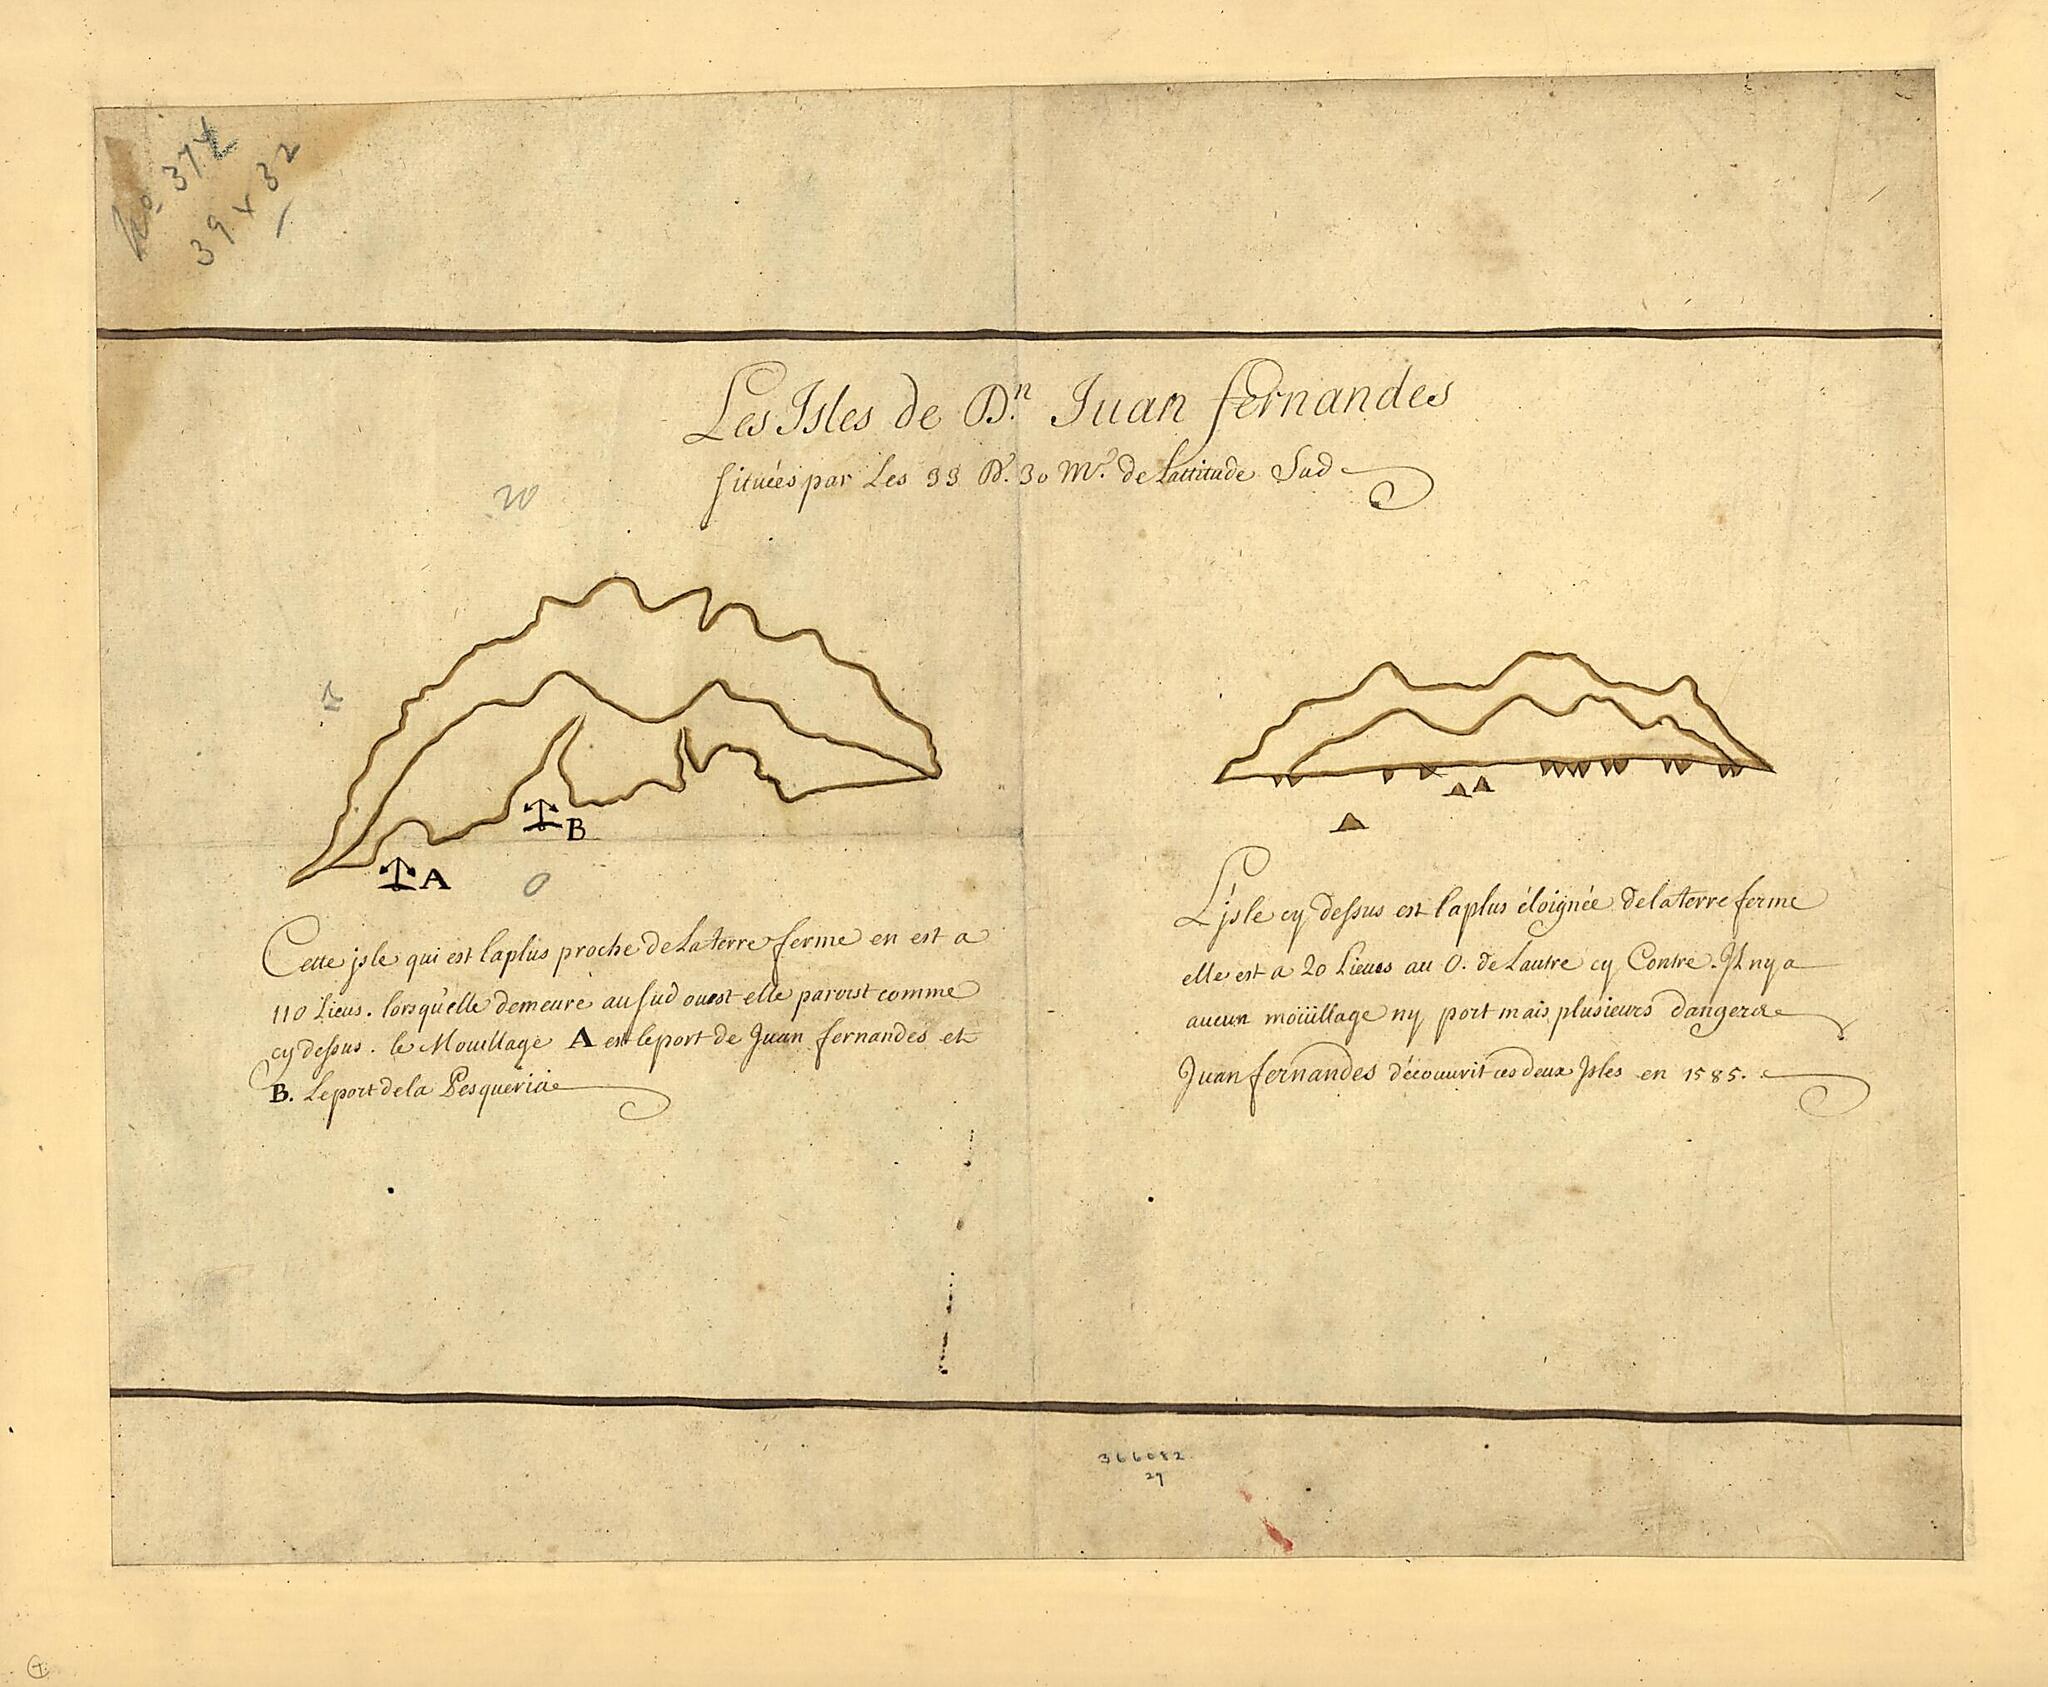 No. 374
39 x 32
Les Isles de D.n Juan fernandes
situées par Les 33 D. 30 M. de Lattitude Sud
20
B
A
0
Cette jsle qui est laplus proche de La terre ferme en est a
110 Lieus. lors qu'elle demeure au sud ouest elle paroist comme
cy dessus. le Mouillage A est le port de Juan fernandes et
B. Le port de la Pesqueria
L'jsle cy dessus est laplus éloignée de la terre ferme
elle est a 20 Lieues au O. de Lautre cy Contre. Jl ny a
aucun moüillage ny port mais plusieurs dangers
Juan fernandes découurit ces deux Jsles en 1585.
366082
29